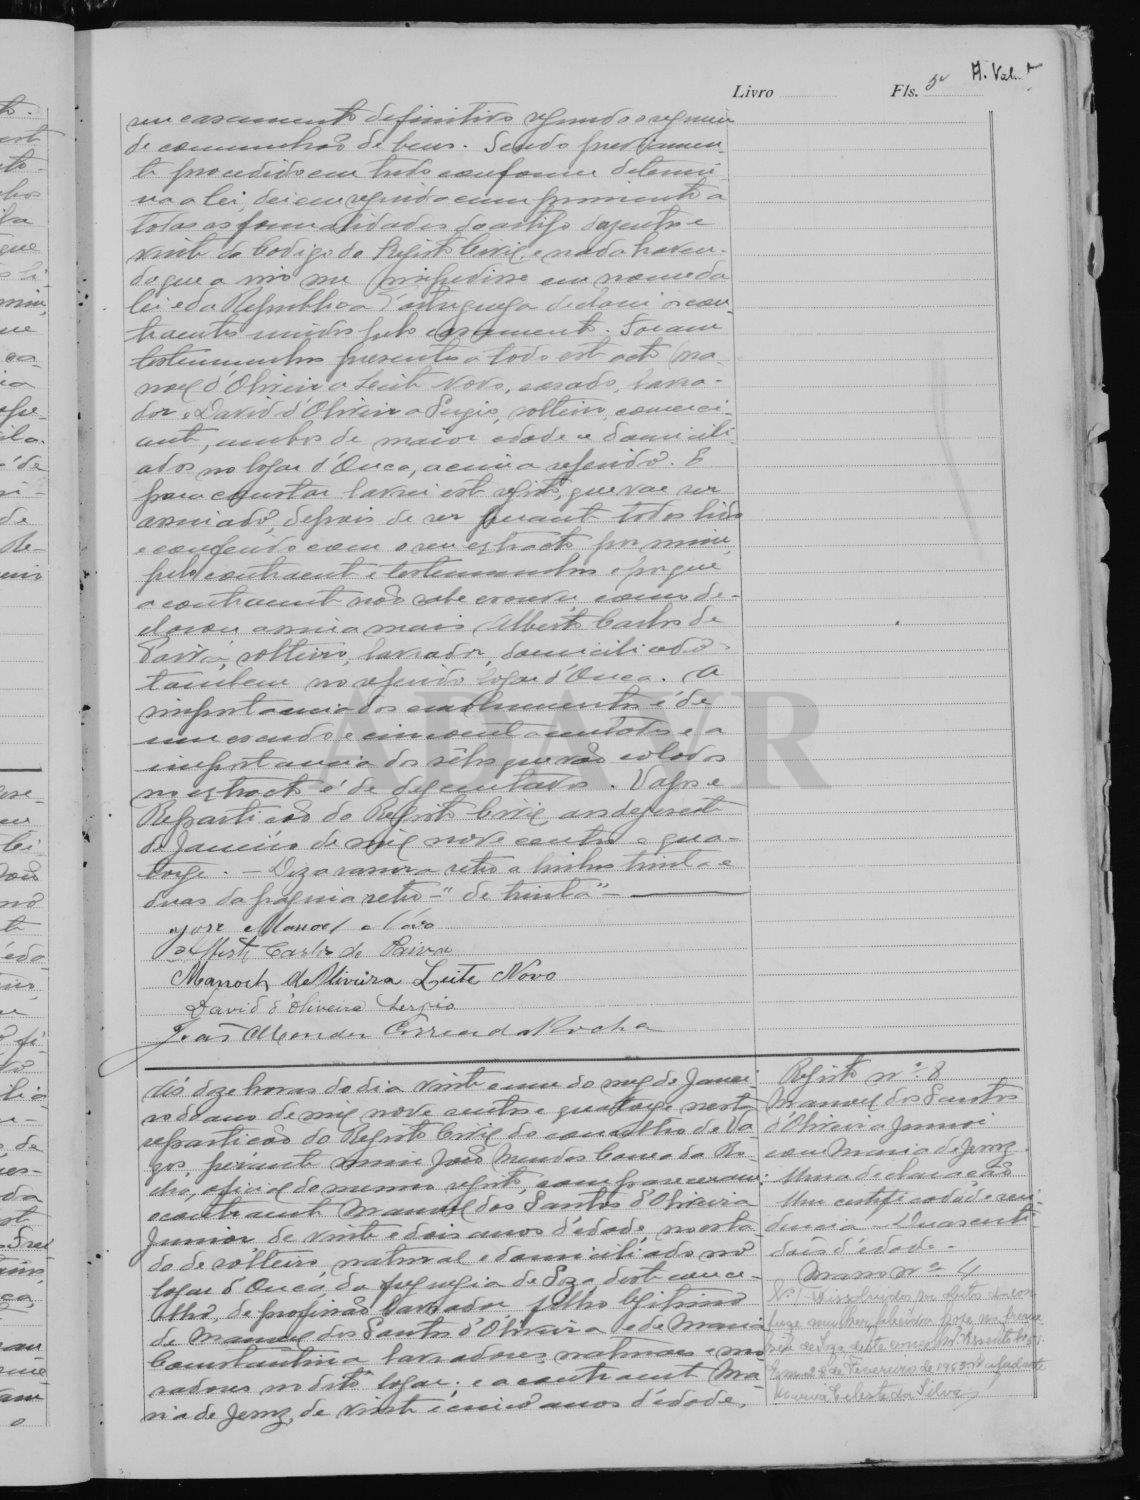 Livro Fls. 5v
seu casamento definitivo segundo o regimen
de communhão de bens. Sendo previamen
te procedido em tudo conforme determi
na a lei, dei em seguida cumprimento a
todas as formalidades do artigo duzentos e
vinte do Codigo do Registo Civil e nada haven-
do que a isso me impedisse em nome da
lei e da Republica Portugueza declarei os con
trahentes unidos pelo casamento. Foram
testemunhas presentes a todo este acto Ma
noel d'Oliveira Leite Novo, casado, lavra-
dor e David d'Oliveira Sergio, solteiro, comerci-
ante, ambos de maior edade e domicili-
ados no logar d'Ouca, acima referido. E
para constar lavrei este registo, que vae ser
assinado, depois de ser perante todos lido
e conferido com o seu extracto por mim,
pelo contraente e testemunhas e porque
a contraente não sabe escrever como de-
clarou assina mais Alberto Carlos de
Paiva, solteiro, lavrador, domiciliado
tambem no referido logar d'Ouca. A
importancia dos emolumentos é de
um escudo e cincoenta centavos e a
importancia dos sêlos que vão colados
no extracto é de dez centavos. Vagos e
Repartição do Registo Civil, aos dezesete
de Janeiro de mil nove centos e qua-
torze. – Diz a rasura retro a linhas trinta e
duas da pagina retro – "de trinta" –
José Manoel
Alberto Carlos de Paiva
Manoel de Oliveira Leite Novo
David d'Oliveira Sergio
João Mendes Correia da Rocha
Ás doze horas do dia vinte e um do mez de Janei-
ro do ano de mil nove centos e quatorze nesta
repartição do Registo Civil do concelho de Va-
gos, perante mim João Mendes Correia da Ro-
cha, oficial do mesmo registo, compareceram:
o contraente Manoel dos Santos d'Oliveira
Junior de vinte e dois anos d'edade, no esta-
do de solteiro, natural e domiciliado no
logar d'Ouca, da freguezia de Soza, deste conce-
lho, de profissão lavrador, filho legitimo
de Manoel dos Santos d'Oliveira e de Maria
Constantina lavradores, naturaes e mo-
radores no dito logar; e a contraente Ma-
ria de Jesus, de vinte e cinco anos d'edade,
Registo nº 8
Manoel dos Santos
d'Oliveira Junior
com Maria de Jesus.
Uma declaração
Um certificado de resi-
dencia – Duas certi-
dões d'edade –
Masso nº 4
Nº 1 Dissolvido por obito do con
juge mulher, falecida hoje na fregue
sia de Soza, deste concelho.
Em 28 de Fevereiro de 1953. O ajudante
Celeste da Silva
ADAVR